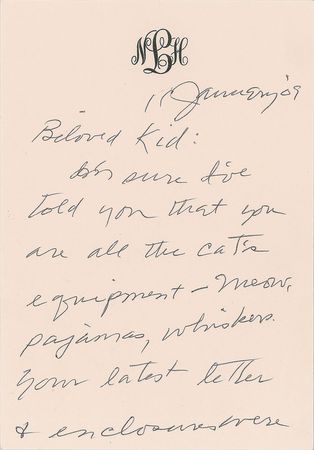 NLH
11 January '09
Beloved Kid:
I'm sure I've
told you that you
are all the cat's
equipment – meow,
pajamas, whiskers.
Your latest letter
& enclosures were